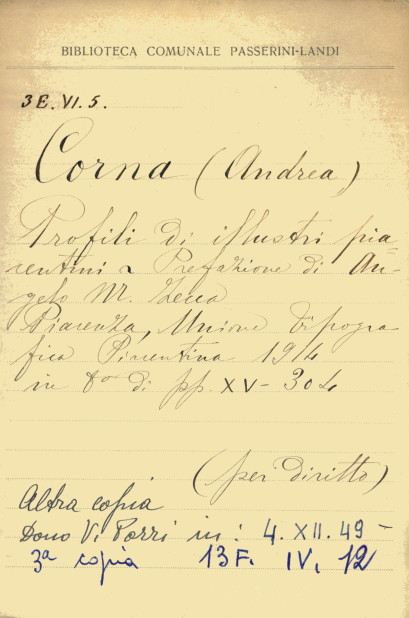 BIBLIOTECA COMUNALE PASSERINI-LANDI
3E. VI. 5.
Corna (Andrea)
Profili di illustri pia=
centini Prefazione di An-
gelo M. Zecca
Piacenza, Unione Tipogra
fica Piacentina 1914
in 8º di pp. XV - 304
(per diritto)
Altra copia
Dono V. Porri in: 4. XII. 49 -
3ª copia 13F. IV. 12